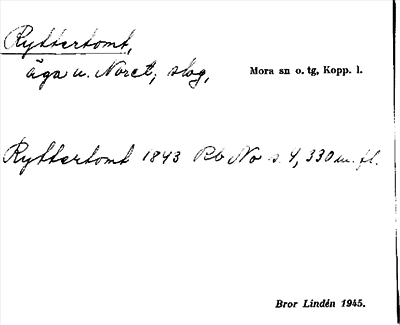 Ryttertomt,
äga u. Noret, skog, Mora sn o. tg, Kopp. l.
Ryttertomt 1843 Rb No s. 4, 330 m. fl.
Bror Lindén 1945.